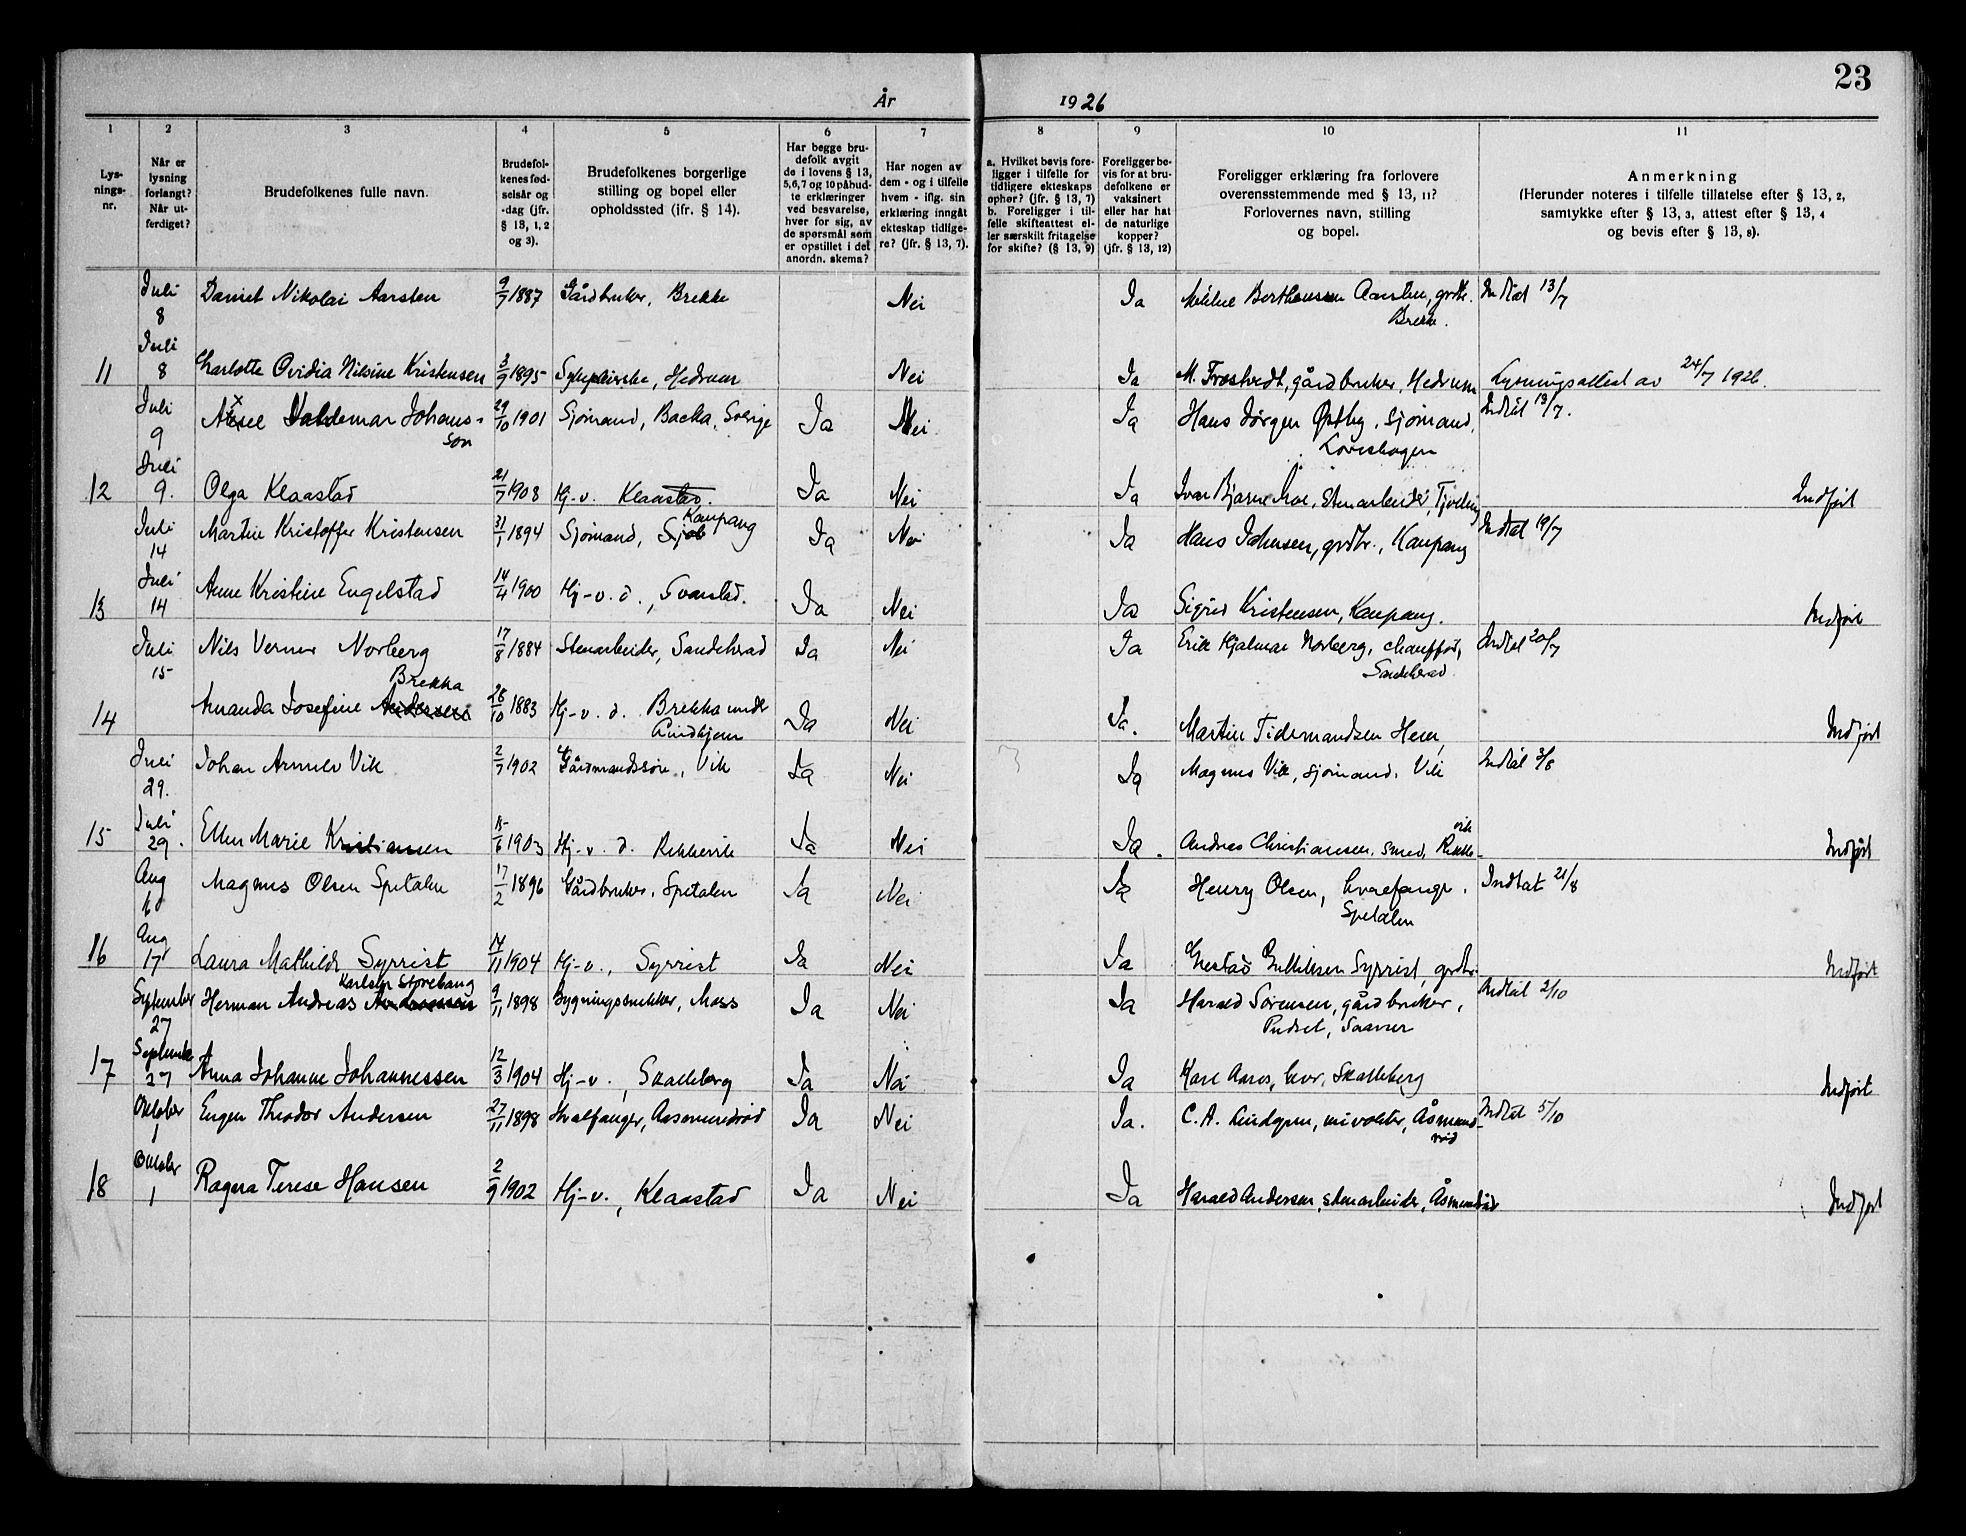 23
År 1926
1 2 3 4 5 6 7 8 9 10 11
Lys-
nings-
nr.
Når er
lysning
forlangt?
Når ut-
ferdiget?
Brudefolkenes fulle navn.
Brudefol-
kenes fød-
selsår og
-dag (jfr.
§ 13, 1, 2
og 3).
Brudefolkenes borgerlige
stilling og bopel eller
opholdssted (ifr. § 14).
Har begge bru-
defolk avgit
de i lovens § 13,
5, 6, 7 og 10 påbud-
te erklæringer
ved besvarelse,
hver for sig, av
de spørsmål som
er opstillet i det
anordn. skema?
Har nogen av
dem - og i tilfelle
hvem - iflg. sin
erklæring inngåt
ekteskap tidlige-
re? (jfr. § 13, 7).
a. Hvilket bevis fore-
ligger i tilfelle for
tidligere ekteskaps
ophør? (jfr. § 13, 7)
b. Foreligger i til-
felle skifteattest el-
ler særskilt fritagelse
for skifte? (§ 13, 9)
Foreligger be-
vis for at bru-
defolkene er
vaksinert
eller har hat
de naturlige
kopper?
(jfr. § 13, 12)
Foreligger erklæring fra forlovere
overensstemmende med § 13, 11?
Forlovernes navn, stilling
og bopel.
Anmerkning
(Herunder noteres i tilfelle tillatelse efter § 13, 2,
samtykke efter § 13, 3, attest efter § 13, 4
og bevis efter § 13, 8).
Juli 8 Daniel Nikolai Aarsten 9/7 1887 Gårdbruker, Brekke Nei Ja Berthensen Aarsten, grdbr. Indtat 13/7
Brekke.
11 Juli 8 Charlotte Ovidia Nilsine Kristensen 3/9 1895 Sykepleierske, Hedrum Nei Ja M. Frostvedt, gårdbruker, Hedrum Lysningsattest av 24/7 1926.
Juli 9 Axel Valdemar Johans- 29/10 1901 Sjømand, Backa, Sverige Ja Nei Ja Hans Jørgen Østby, Sjømand, Indtat 13/7.
son Loveshagen
12 Juli 9. Olga Klaastad 21/7 1908 Hj-v. Klaastad. Ja Nei Ja Ivar Bjarne Moe, Stenarbeider, Tjodling Indført
Juli 14 Martin Kristoffer Kristensen 31/1 1894 Sjømand, Sjøb Kaupang Ja Nei Ja Hans Johnsen, grdbr., Kaupang Indtat 19/7
13 Juli 14 Anne Kristine Engelstad 14/4 1900 Hj-v. d., Svarstad. Ja Nei Ja Sigurd Kristensen, Kaupang. Indført
Juli 15 Nils Verner Norberg 17/8 1884 Stenarbeider, Sandeherad Ja Nei Ja Erik Hjalmar Norberg, chauffør, Indtat 20/7
Sandeherad
14 Amanda Josefine Andersen Brekka 28/10 1883 Hj-v. d. Brekka under Ja Nei Ja. Martin Tidemandsen Hem, Indført
Lindhjem
Juli 29. Johan Arnulv Vik 2/7 1902 Gårdmandssøn, Vik Ja Nei Ja Magnus Vik, sjømand, Vik Indtat 3/8
15 Juli 29. Ellen Marie Kristiansen 15/6 1903 Hj-v. d. Rekkevik Ja Nei Ja. Andreas Christiansen, smed, Rekke- Indført
vik
Aug Magnus Olsen Spetalen 17/2 1896 Gårdbruker, Spetalen Ja Nei Ja Henry Olsen, hvalfanger. Indtat 21/8
Spetalen
16 Aug 17 Laura Mathilde Syrrist 14/11 1904 Hj-v., Syrrist Ja Nei Ja Gustav Gulliksen Syrrist, grdbr. Indført
September 27 Herman Andreas Andreassen Karlsen Storebaug 9/11 1898 Bygningssnekker, Moss Ja Nei Ja Harald Sørensen, gårdbruker, Indtat 2/10
17 September 27 Anna Johanne Johannessen 12/3 1904 Hj-v., Skalleberg Ja Nei Ja Karl Aares, Skalleberg Indført
Oktober 1 Eugen Theodor Andersen 27/11 1898 Hvalfanger, Aasmundrød Ja Nei Ja. C. A. Lindgren, Åsmund- Indtat 5/10
rød
18 Oktober 1 Ragna Terese Hansen 2/9 1902 Hj-v., Klaastad Ja Nei Ja Harald Andersen, stenarbeider, Åsmundrød Indført